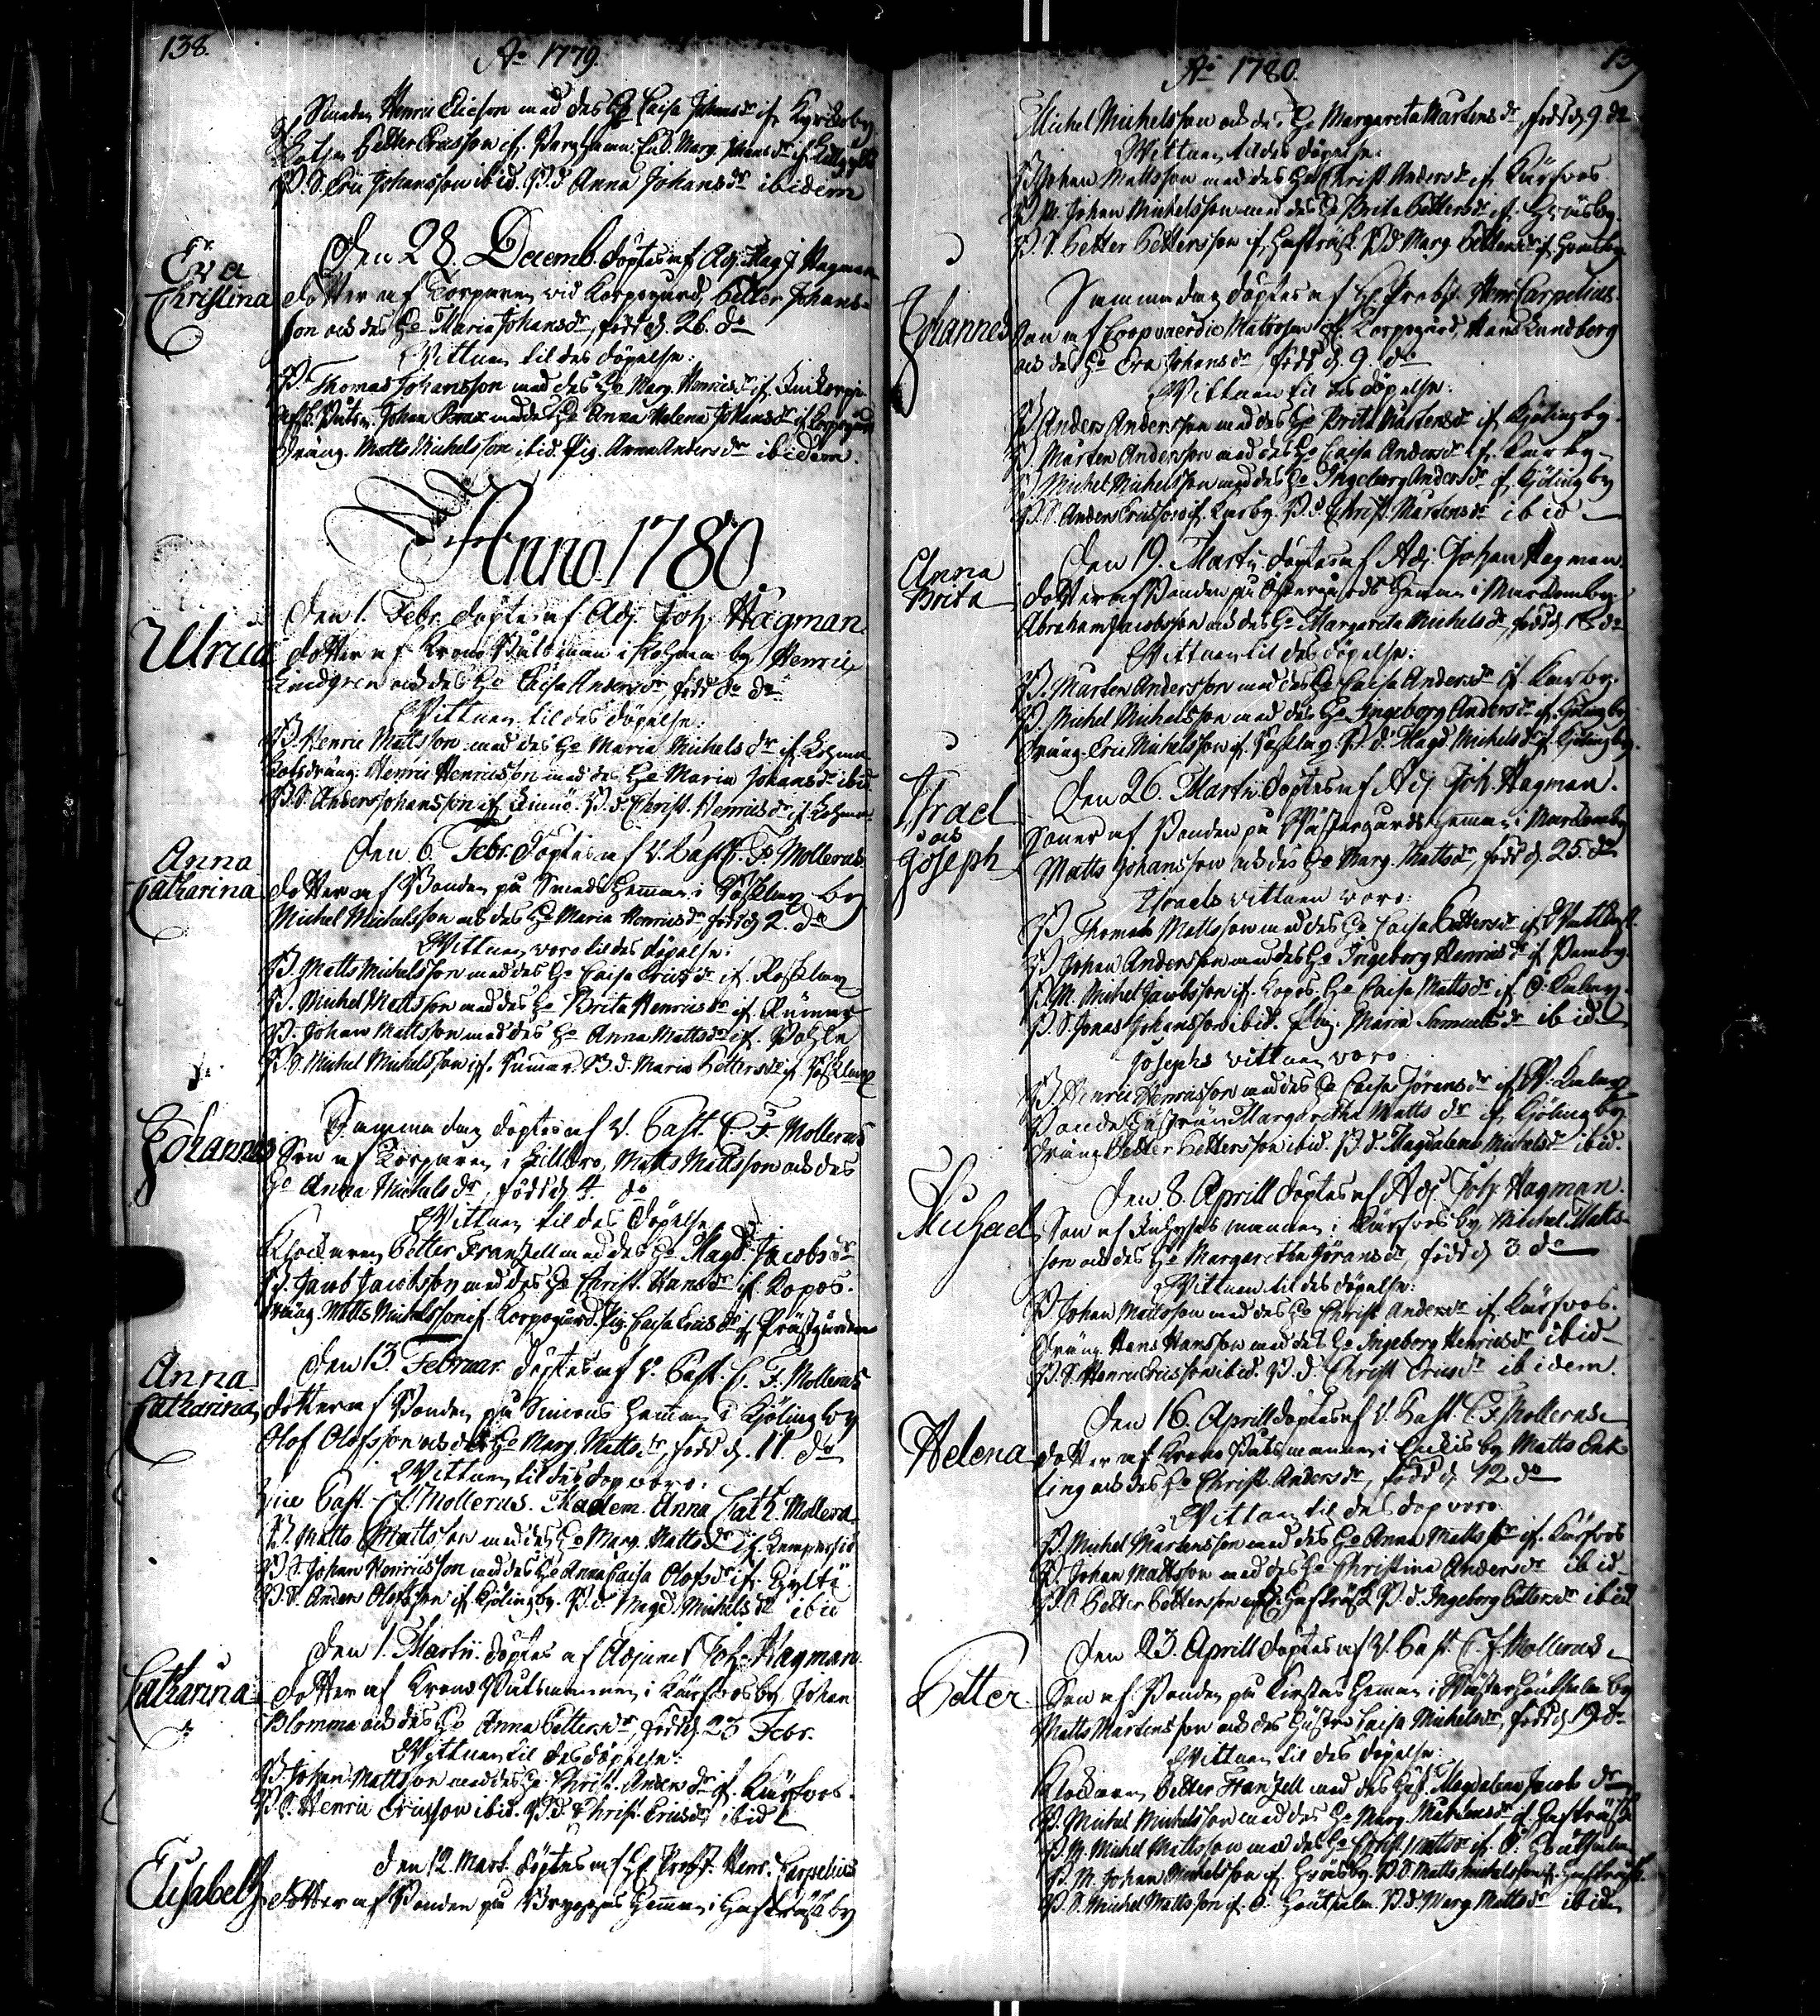 138.
Ao 1779.
Henric Ericson med des H. Caisa Johansdr if. Kyrckoby
Petter Ericsson if. Enk. Marg. Johansdr if.
B.S. Eric Johansson ibid. B.d Anna Johansdr ibidem
Eva Christina
Den 28. Decemb. döptes af Adj. Mag. J Hagman
dotter af Torparen vid Korpogård, Petter Johans-
son och des Ho Maria Johansdr, född d. 26. do
Vittnen til des döpelse:
B. Thomas Johansson med des Ho Marg. Henricsdr if.
Johan Brax med des Ho Anna Helena Johansdr if. Korpogård
Dräng. Matts Michelsson ibid. Pig. Anna Andersdr ibidem.
Anno 1780.
Ulrica
Den 1. Febr. döptes af Adj. Joh: Hagman
dotter af Krono Båtsman i by Henric
Lindgren och des Ho Caisa Andersdr, född do do
Vittnen til des döpelse:
B. Henric Mattsson med des Ho Maria Michelsdr if.
Henric Henricsson med des Ho Maria Johansdr ibid
B.S. Anders Johansson if. B.d Christ. Henricsdr if.
Anna Catharina
Den 6. Febr. döptes af V. Past. C. F. Mollerus
dotter af Bonden på Smeds Hemman i by
Michel Michelsson och des Ho Maria Henricsdr född d. 2. do
Vittnen voro til des döpelse:
B. Matts Michelsson med des Ho Caisa Ericsdr if.
B. Michel Mattsson med des Ho Brita Henricsdr if. Rumar
B. Johan Mattsson med des Ho Anna Mattsdr if.
B.S. Michel Michelsson if. Rumar. B.d. Maria Pettersdr if.
Johannes
Samma dag döptes af V. Past. C. F. Mollerus
Son af Torparen i Matts Mattsson och des
Ho Anna Michelsdr, född d. 4. do
Vittnen til des döpelse
Klockaren Petter Franzell med des Ho Magd. Jacobsdr
B. Jacob Jacobsson med des Ho Christ. Hansdr if. Kopos.
Dräng. Matts Michelsson if. Korpogård. Pig. Caisa Ericsdr if. Prästgården
Anna Catharina
Den 13. Februar. döptes af V. Past. C. F. Mollerus
dotter af Bonden på Simons Hemman i Kjölingby
Olof Olofsson och des Ho Marg. Mattsdr, född d. 11. do
Vittnen til des dop voro:
Vice Past. C. F. Mollerus. Madem. Anna Cath. Mollera
B. Matts Mattsson med des Ho Marg. Mattsdr if.
B.S. Johan Henricsson med des Ho Anna Caisa Olofsdr if. Gyltö
B.S. Anders Olofsson if. Kjölingby. B.d. Magd. Michelsdr ibid
Catharina
Den 1. Martii döptes af Adjunct Joh. Hagman
dotter af Krono Båtsmannen i Kårfvosby Johan
Blomma och des Ho Anna Pettersdr, född d. 23 Febr.
Vittnen til des döpelse:
B. Johan Mattsson med des Ho Christ. Andersdr if. Kårfvos.
B.S. Henric Ericsson ibid. B.d. Christ. Ericsdr ibid
Elisabeth
Den 12. Mart. döptes af H. Probst. Henr. Carpelius
dotter af Bonden på Hemman i Hafträsk by
139
Ao 1780.
Michel Michelsson och des Ho Margareta Mårtensdr, född d. 9. do
Vittnen til des döpelse:
B. Johan Mattsson med des Ho Christ Andersdr if. Kårfvos
B.M. Johan Michelsson med des Ho Brita Pettersdr if. Gräsby.
B.S. Petter Pettersson if. Hafträsk. B.d Marg. Pettersdr if.
Johannes
Samma dag döptes af H. Probst. Henr. Carpelius
Son af Coopvaerdie Matrosen if Korpogård, Hans Lundberg
och des Ho Eva Johansdr, född d. 9. do
Vittnen til des döpelse:
B. Anders Andersson med des Ho Brita Mårtensdr if. Kjölingby.
B. Mårten Andersson med des Ho Caisa Andersdr if. Karby.
B. Michel Michelsson med des Ho Ingeborg Andersdr if. Kjölingby
B.S. Anders Ericsson if. Karby. B.d Christ. Mårtensdr ibid
Anna Brita
Den 19. Martii döptes af Adj. Johan Hagman
dotter af Bonden på Östergårds Hemman i
Abraham Jacobsson och des Ho Margareta Michelsdr, född d. 18 do
Vittnen til des döpelse:
B. Mårten Andersson med des Ho Caisa Andersdr if. Karby.
B. Michel Michelsson med des Ho Ingeborg Andersdr if. Kjölingby
Dräng. Eric Michelsson if. B.d. Magd. Michelsdr if. Kjölingby.
Israel och Joseph
Den 26. Martii döptes af Adj. Joh. Hagman.
Söner af Bonden på Wästergårds Hemman i
Matts Johansson och des Ho Marg. Mattsdr, född d. 25. do
Israels vittnen voro:
B. Thomas Mattsson med des Ho Caisa Pettersdr if.
B. Johan Andersson med des Ho Ingeborg Henricsdr if.
B.M. Michel Jacobsson if. Kopos. Ho Caisa Mattsdr if. Ö.
B.S. Jonas Johansson ibid. Pig. Maria Samuelsdr ibid.
Josephs vittnen voro:
B. Henric Henricsson med des Ho Caisa Jöransdr if. W.
Bonde Hustrun Margaretha Mattsdr if. Kjölingby
Dräng Petter Pettersson ibid. B.d. Magdalena Michelsdr ibid.
Michael
Den 8. Aprill döptes af Adj. Joh. Hagman.
Son af Inhysesmannen i Kårfvos by Michel Matts-
son och des Ho Margaretha Jöransdr, född d. 3. do
Vittnen til des döpelse:
B. Johan Mattsson med des Ho Christ Andersdr if. Kårfvos.
Dräng Hans Hansson med des Ho Ingeborg Henricsdr ibid
B.S. Henric Ericsson ibid. B.d. Christ Ericsdr ibidem.
Helena
Den 16. Aprill döptes af V. Past. C. F. Mollerus
dotter af Krono Båtsmannen i by Matts
ling och des Ho Christ. Andersdr, född d. 12 do
Vittnen til des dop voro:
B. Michel Mårtensson med des Ho Anna Mattsdr if. Kårfvos
B. Johan Mattsson med des Ho Christina Andersdr ibid
B.S. Petter Pettersson if. Hafträsk B.d. Ingeborg Pettersdr ibid
Petter
Den 23. Aprill döptes af V. Past. C. F. Mollerus
Son af Bonden på Hemman i by
Matts Mårtensson och des Hustro Caisa Michelsdr, född d. 19 do
Vittnen til des döpelse:
Klockaren Petter Franzell med des Hust. Magdalena Jacobsdr
B. Michel Michelsson med des Ho Marg. Mårtensdr if. Hafträsk
B.M. Michel Mattsson med des Ho Christ. Mattsdr if. Ö.
B.M. Johan Michelsson if. Gräsby. B.S. Matts Michelsson if. Hafträsk.
B.S. Michel Mattsson if. Ö. B.d. Marg Mattsdr ibidem